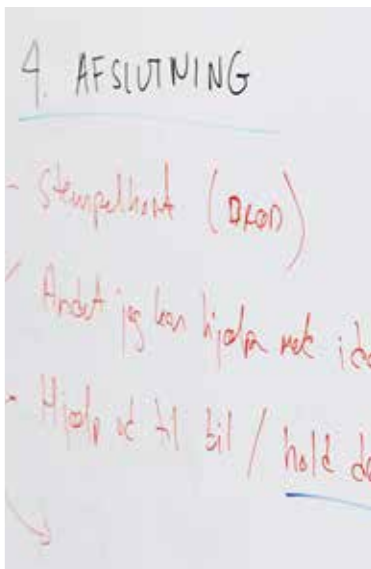 4. AFSLUTNING
- Stempelkort (BROD)
Andet jeg kan hjælpe med i
- Hjælp ud til bil / hold